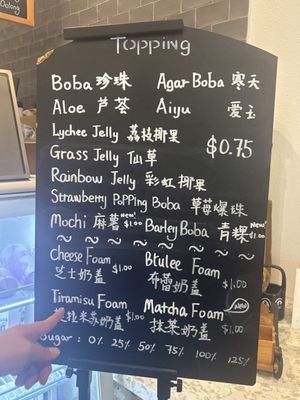 Oolong
Topping
Boba 珍珠 Agar Boba 寒天
Aloe 芦荟 Aiyu 爱玉
Lychee Jelly 荔枝椰果
$0.75
Grass Jelly 仙草
Rainbow Jelly 彩虹椰果
Strawberry Popping Boba 草莓爆珠
Mochi 麻薯 New! $1.00 Barley Boba 青稞 New! $1.00
Cheese Foam $1.00 Btulee Foam
芝士奶盖 布蕾奶盖 $1.00
Tiramisu Foam Matcha Foam New
拉米苏奶盖 $1.00 抹茶奶盖 $1.00
Sugar : 0% 25% 50% 75% 100% 125%